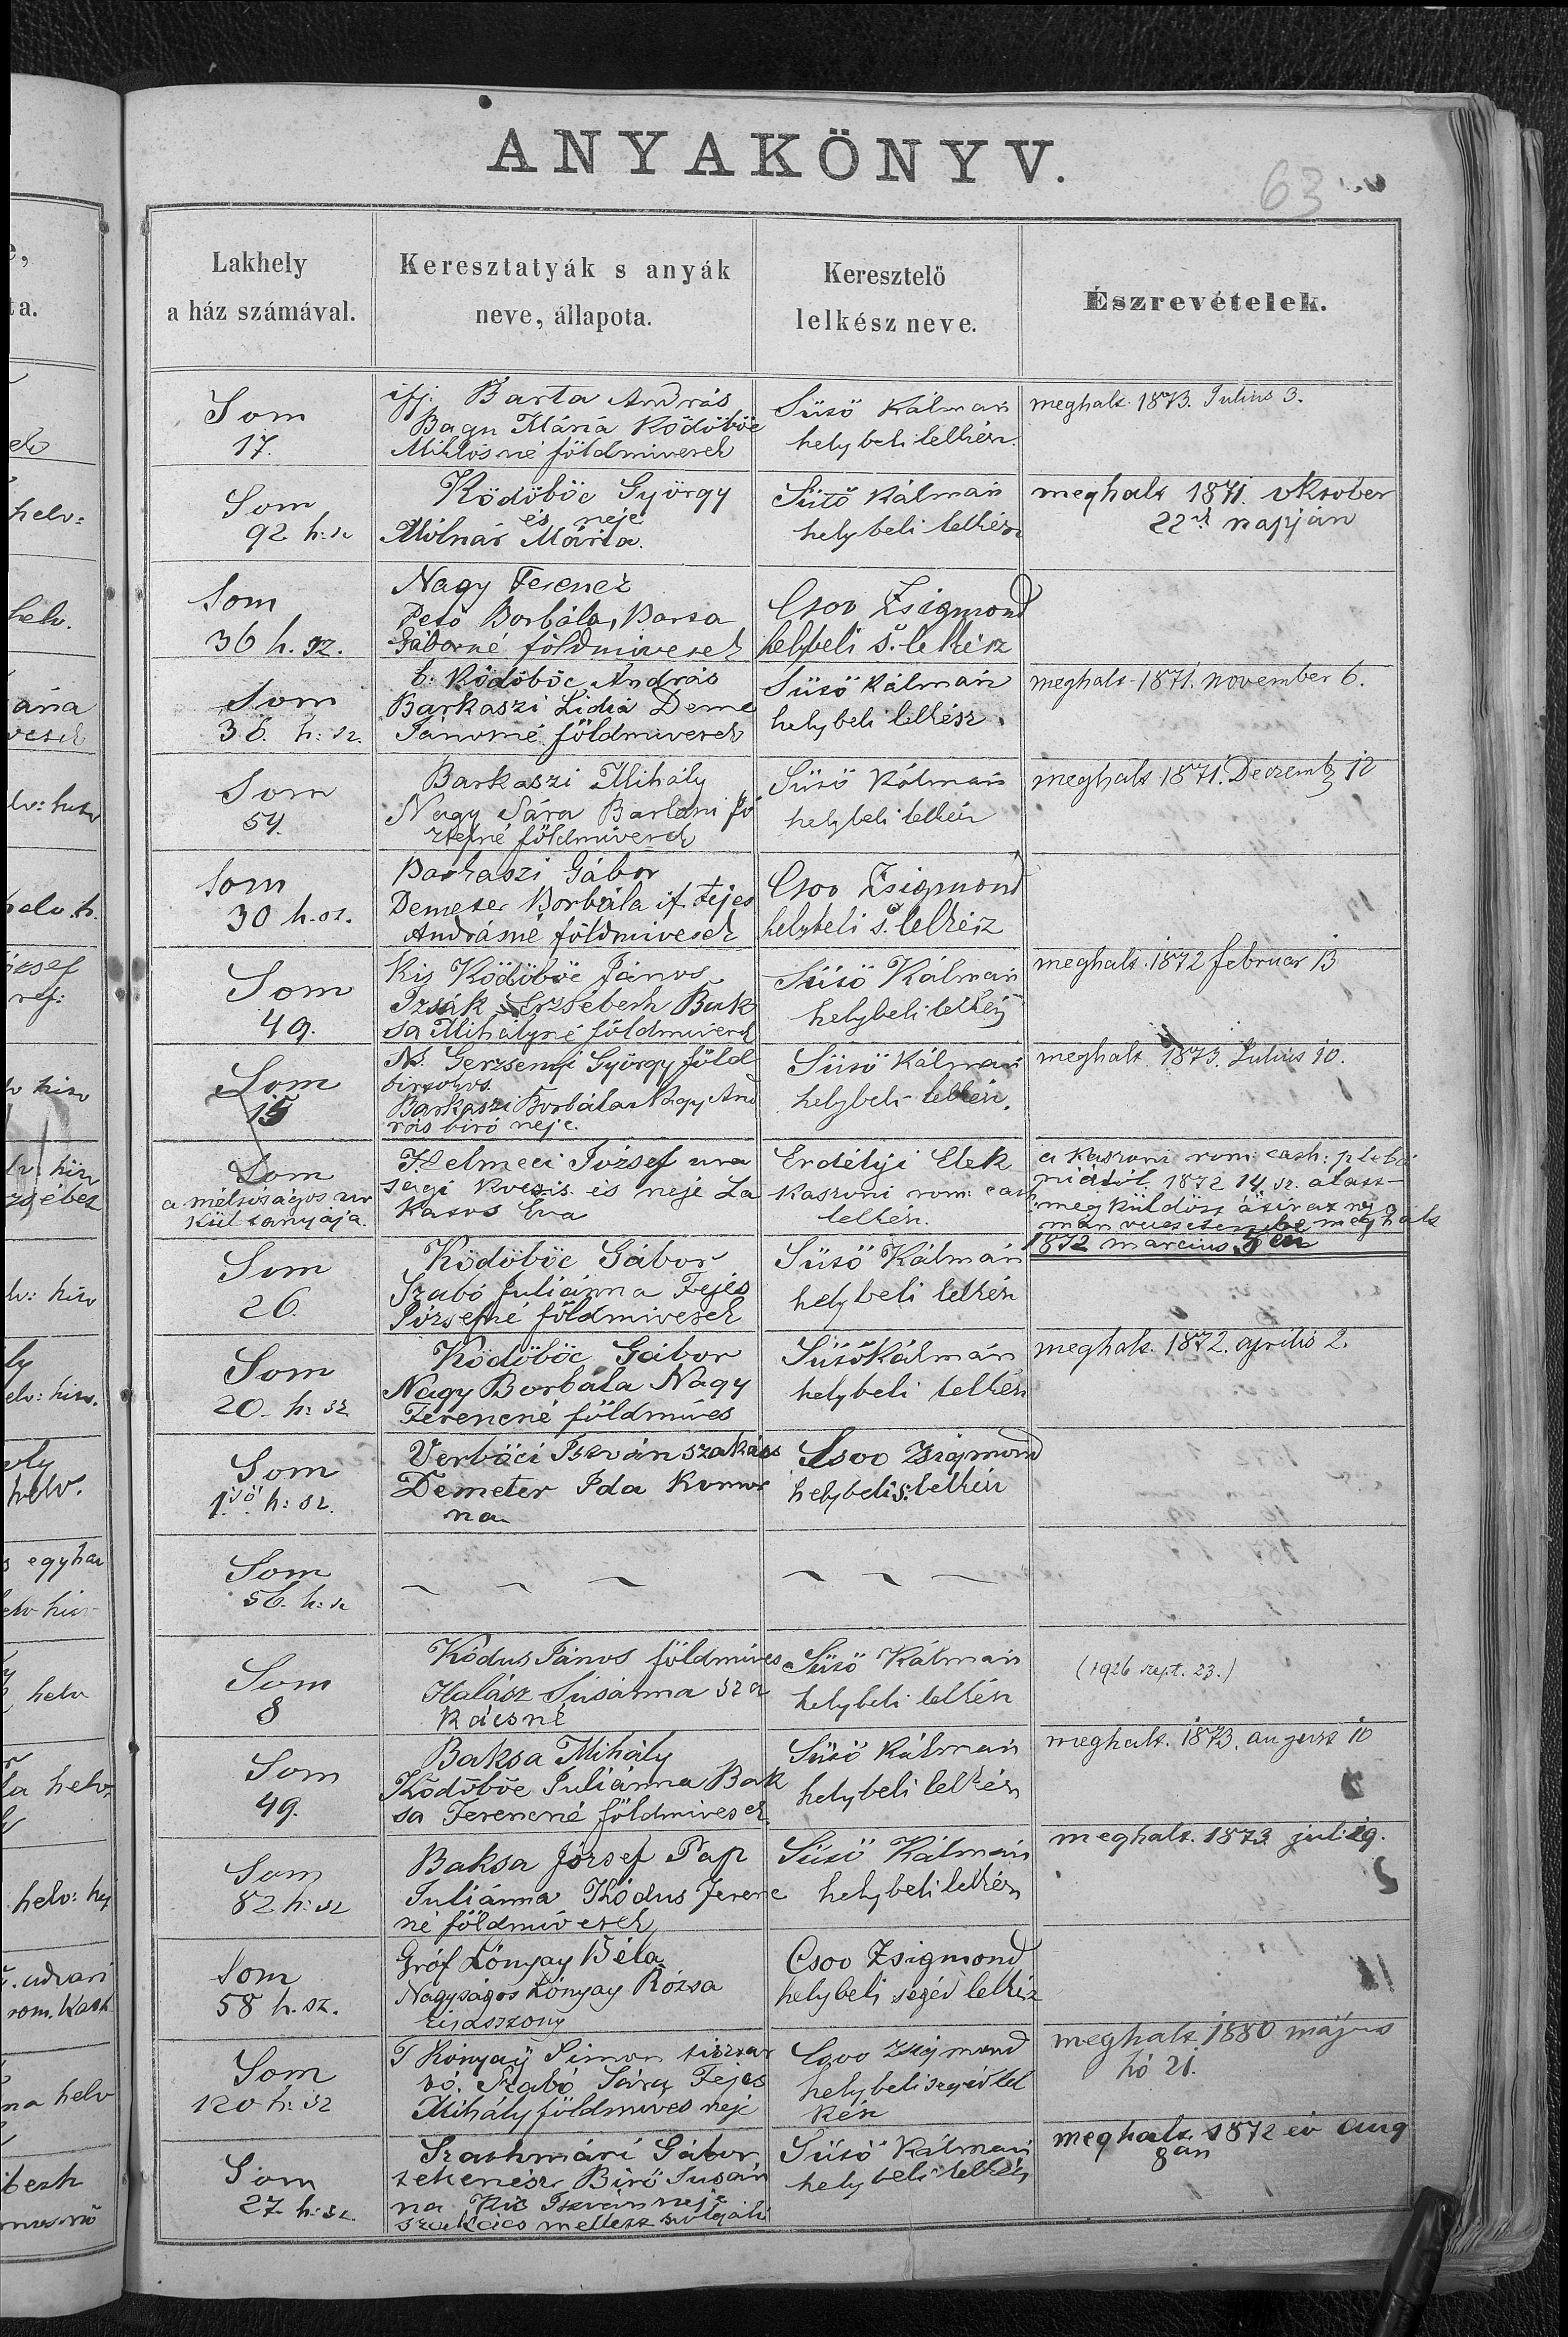 ANYAKÖNYV.
63
Lakhely
a ház számával.
Keresztatyák s anyák
neve, állapota.
Keresztelő
lelkész neve.
Észrevételek.
Som
17.
ifj. Barta András
Bagu Mária Ködöböc
Miklósné földmivesek
Sütő Kálmán
helybeli lelkész
meghalt 1873. Julius 3.
Som
92 h: sz
Ködöböc György
és neje
Mólnár Mária.
Sütő Kálmán
helybeli lelkész
meghalt 1871. oktober
22ik napján
Som
36 h. sz.
Nagy Ferencz
Pető Borbála, Barta
Gáborné földmivesek
Csoo Zsigmond
helybeli s. lelkész
Som
36. h: sz.
b. Ködöböc András
Barkaszi Lidia Deme
Jánosné földmivesek
Sütő Kálmán
helybeli lelkész
meghalt 1871. november 6.
Som
54.
Barkaszi Mihály
Nagy Sára Bartani Jó
zsefné földmivesek
Sütő Kálmán
helybeli lelkész
meghalt 1871. Dezemb 12
Som
30 h. sz.
Barkaszi Gábor
Demeter Borbála if. Fejes
Andrásné földmivesek
Csoo Zsigmond
helybeli s. lelkész
Som
49.
Kis Ködöböc János
Izsák Erzsébeth Bak
sa Mihályné földmivesek
Sütő Kálmán
helybeli lelkész
meghalt 1872 februar 13
Som
15
Ns. Gerzsenyi György föld
birtokos.
Barkaszi Borbála Nagy And
rás biró neje.
Sütő Kálmán
helybeli lelkész.
meghalt 1873. Julius 10.
Som
a méltóságos ur
kül tanyája.
Helmeci József ura
sagi kocsis és neje La
katos Eva
Erdélyi Elek
Kaszoni rom: cath
lelkész.
a Kaszoni rom: cath: pleba
niától 1872 14 sz. alatt
megküldött átirat nyo
mán vezettem be meghalt
1872 marcius 5én
Som
26.
Ködöböc Gábor
Szabó Juliánna Fejes
Józsefné földmivesek
Sütő Kálmán
helybeli lelkész
Som
20. h: sz
Ködöböc Gábor
Nagy Borbála Nagy
Ferencné földmives
Sütő Kálmán
helybeli lelkész
meghalt. 1872. aprilis 2.
Som
1ső h: sz.
Verbőci István szakács
Demeter Ida Komor
na
Csoo Zsigmond
helybeli s: lelkész
Som
56. h: sz
Som
8
Kódus János földmives
Halász Susánna sza
kácsné
Sütő Kálmán
helybeli lelkész
(1926 szept. 23.)
Som
49.
Baksa Mihály
Ködöböc Juliánna Bak
sa Ferencné földmivesek.
Sütő Kálmán
helybeli lelkész
meghalt. 1873. august 10
Som
82 h: sz
Baksa József Pap
Juliánna Kódus Ferenc
né földmivesek
Sütő Kálmán
helybeli lelkész
meghalt. 1873 juli 29.
Som
58 h. sz.
Gróf Lónyay Béla
Nagyságos Lónyay Rózsa
kisasszony
Csoo Zsigmond
helybeli segéd lelkész
Som
120 h: sz
T Kónyay Simon tisztar
tó. Szabó Sára Fejes
Mihály földmives neje
Csoo Zsigmond
helybeli segédlel
kész
meghalt 1880 május
hó 21.
Som
27. h: sz.
Szathmári Gábor
tehenész Biró Susán
na Kis István neje
szakács mellett szolgáló
Sütő Kálmán
helybeli lelkész
meghalt 1872 év aug
8án